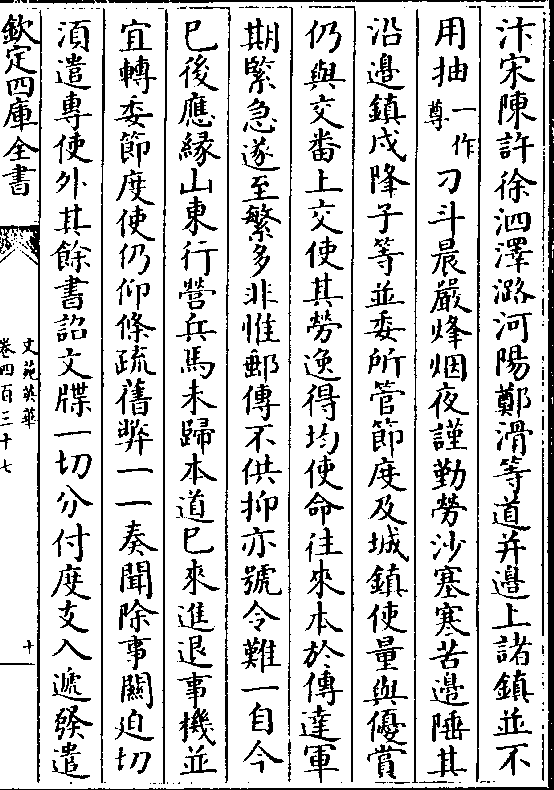 汴宋陳許徐泗澤潞河陽鄭滑等道并邉上諸鎮並不
用抽一作尊刀斗晨嚴烽烟夜謹勤勞沙塞寒苦邉陲其
沿邉鎮戍降子等並委所管節度及城鎮使量與優賞
仍與交畨上交使其勞逸得均使命往來本於傳達軍
期緊急遂至繁多非惟郵傳不供抑亦號令難一自今
已後應縁山東行營兵馬未歸本道已來進退事機並
宜轉委節度使仍仰條疏舊弊一一奏聞除事闗迫切
湏遣專使外其餘書詔文牒一切分付度支入遞發遣
欽定四庫全書
文苑英華
卷四百三十七
十